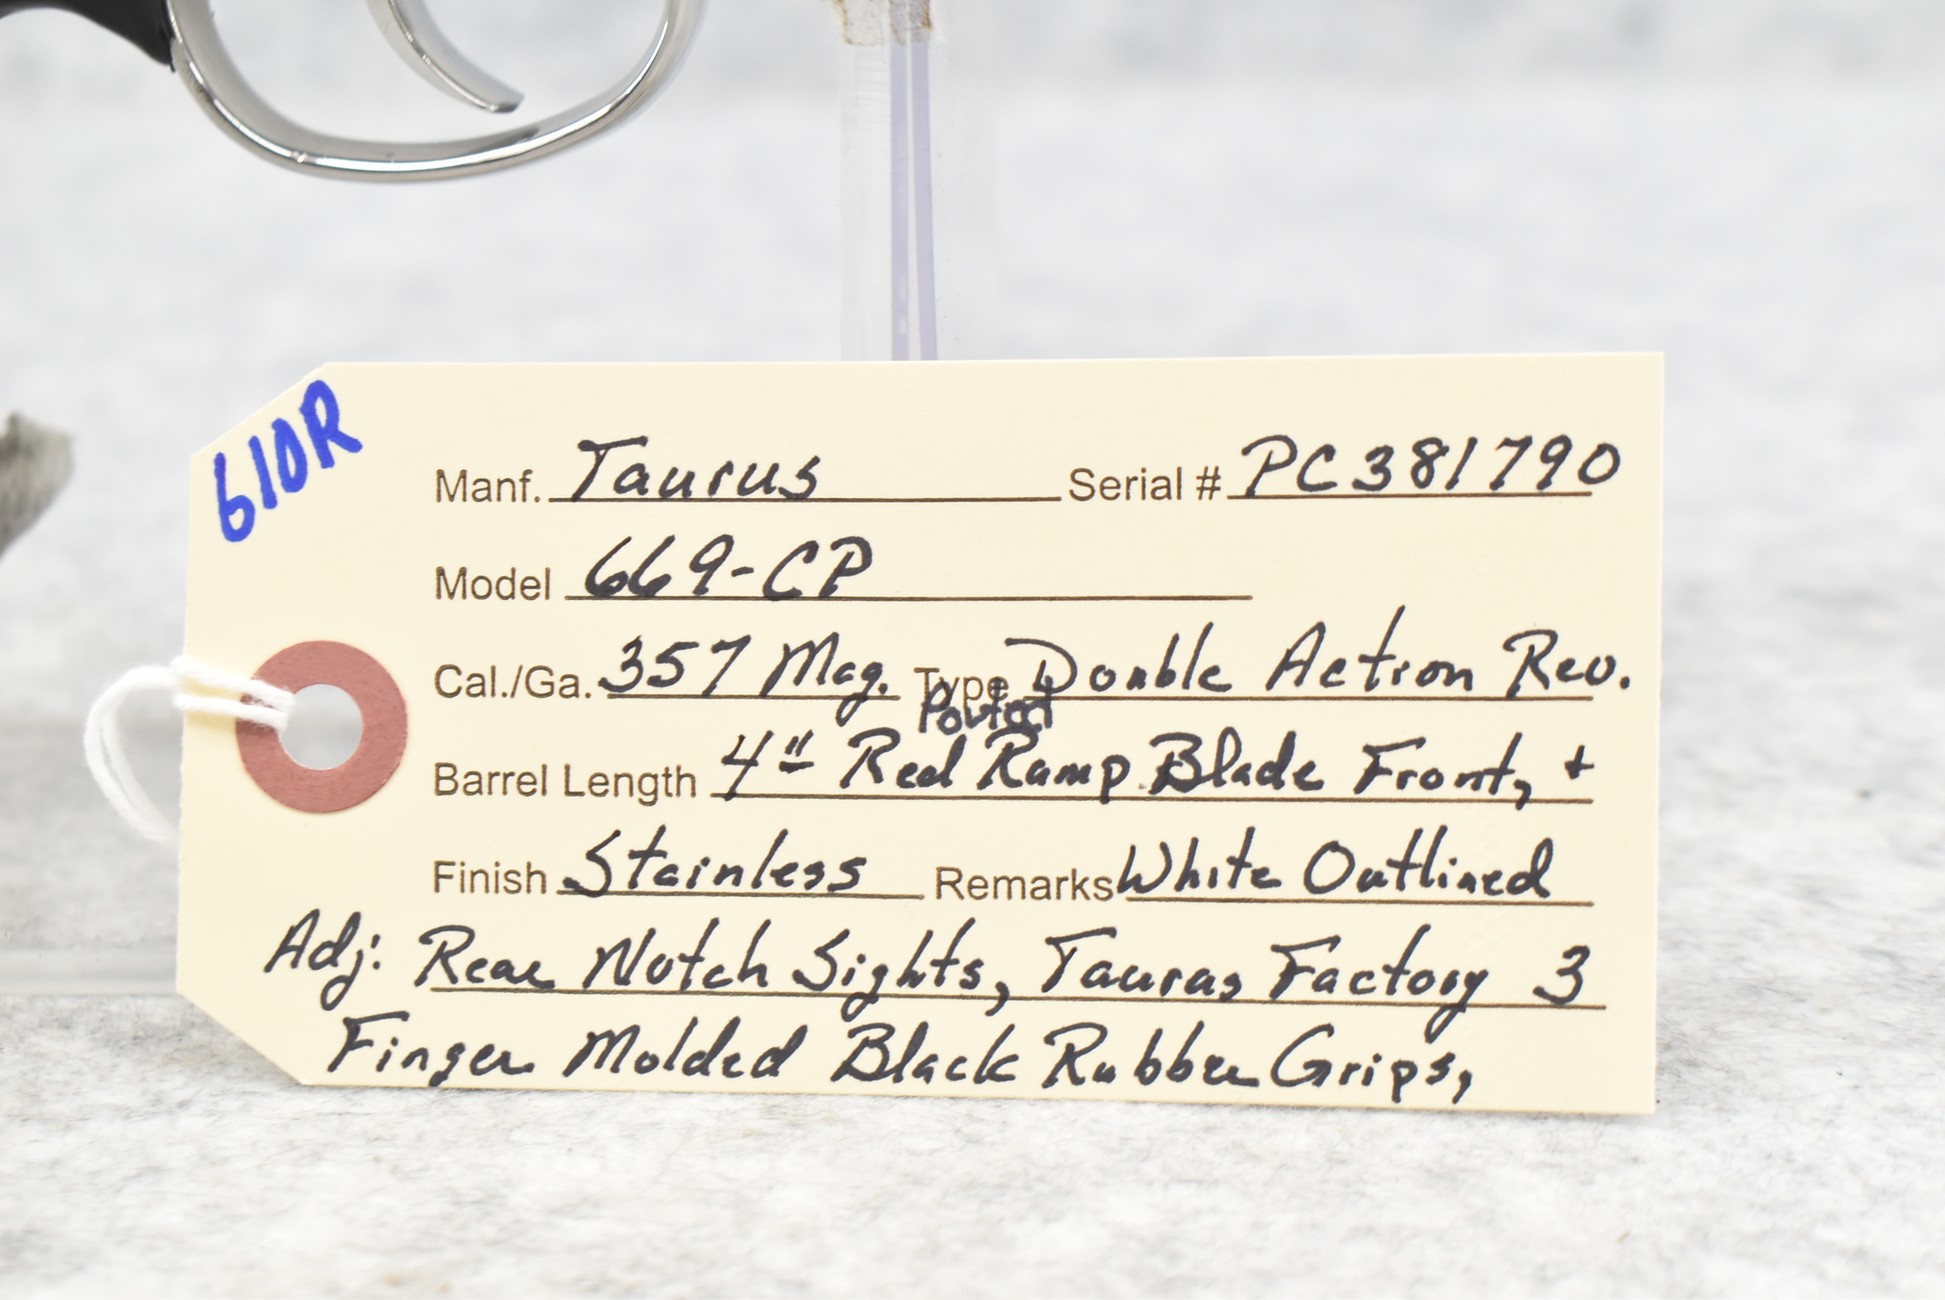 610R
Manf. Taurus Serial # PC381790
Model 669-CP
Cal./Ga. 357 Mag. Type Double Action Rev.
Ported
Barrel Length 4" Red Ramp Blade Front, +
Finish Stainless Remarks White Outlined
Adj: Rear Notch Sights, Taurus Factory 3
Finger Molded Black Rubber Grips,